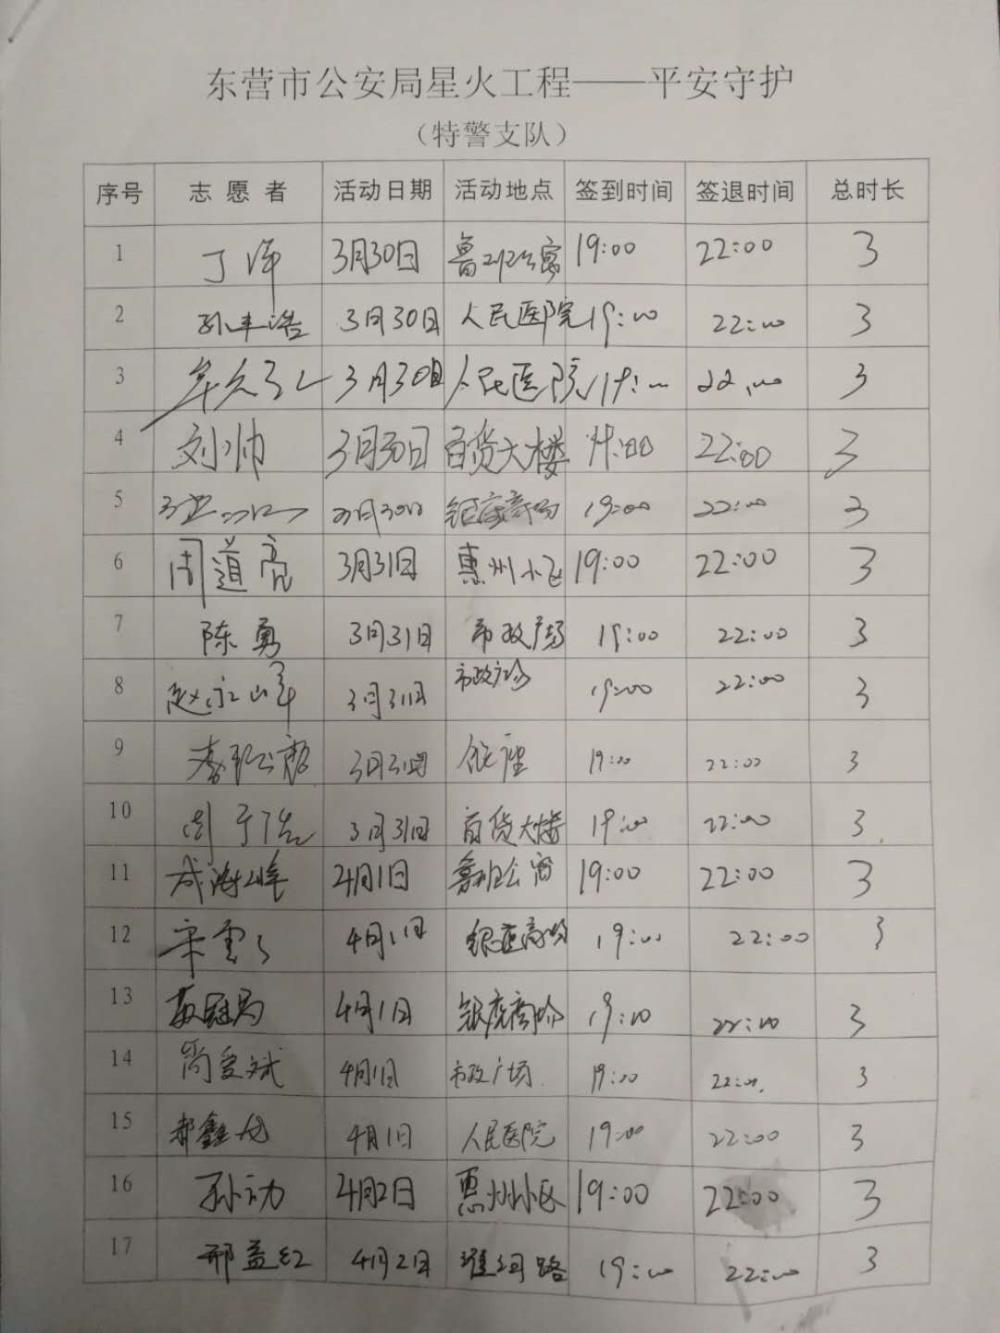 东营市公安局星火工程——平安守护
（特警支队）
序号 志愿者 活动日期 活动地点 签到时间 签退时间 总时长
1 丁泽 3月30日 鲁班公寓 19:00 22:00 3
2 孙丰浩 3月30日 人民医院 19:00 22:00 3
3 3月30日 人民医院 19:00 22:00 3
4 刘帅 3月30日 百货大楼 19:00 22:00 3
5 3月30日 银座商场 19:00 22:00 3
6 周道亮 3月31日 惠州小区 19:00 22:00 3
7 陈勇 3月31日 市政广场 19:00 22:00 3
8 赵永峰 3月31日 市政广场 19:00 22:00 3
9 3月31日 银座 19:00 22:00 3
10 3月31日 百货大楼 19:00 22:00 3
11 成海峰 4月1日 鲁班公寓 19:00 22:00 3
12 4月1日 银座商场 19:00 22:00 3
13 4月1日 银座商场 19:00 22:00 3
14 4月1日 市政广场 19:00 22:00 3
15 郝鑫龙 4月1日 人民医院 19:00 22:00 3
16 孙功 4月2日 惠州小区 19:00 22:00 3
17 邢益红 4月2日 路 19:00 22:00 3